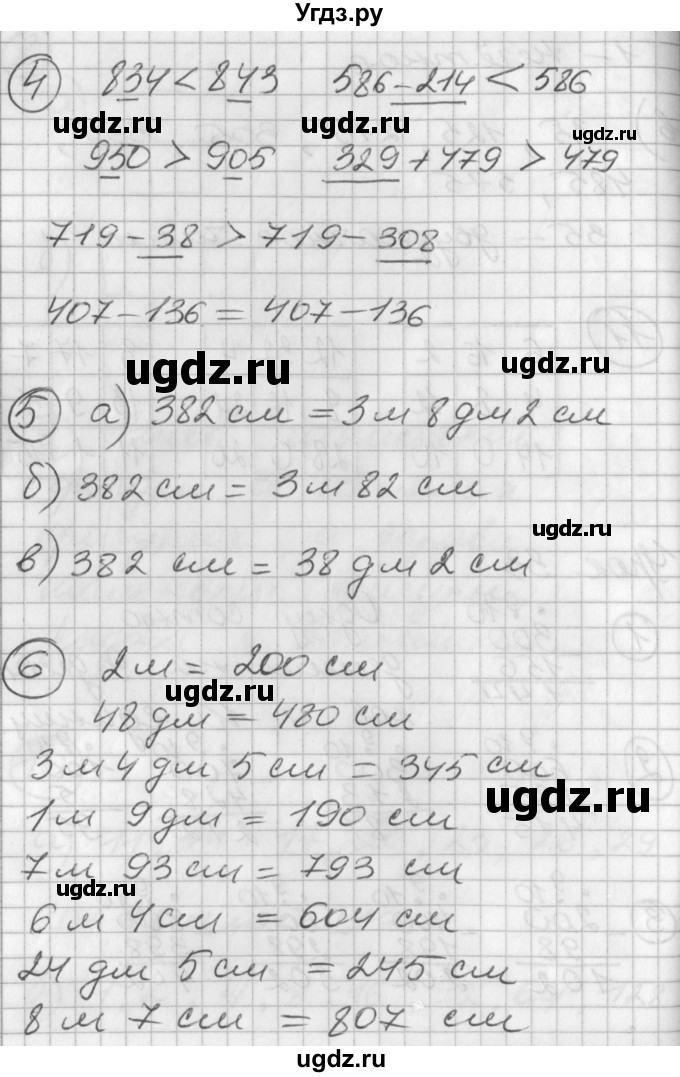 Угдз.ру
4 834 < 843 586 - 214 < 586
ugdz.ru ugdz.ru ugdz.ru
950 > 905 329 + 479 > 479
719 - 38 > 719 - 308
407 - 136 = 407 - 136
ugdz.ru ugdz.ru
5 а) 382 см = 3 м 8 дм 2 см
б) 382 см = 3 м 82 см
ugdz.ru
в) 382 см = 38 дм 2 см
6 2 м = 200 см
ugdz.ru
48 дм = 480 см
3 м 4 дм 5 см = 345 см
ugdz.ru
1 м 9 дм = 190 см
7 м 93 см = 793 см
ugdz.ru
6 м 4 см = 604 см
24 дм 5 см = 245 см
8 м 7 см = 807 см
ugdz.ru